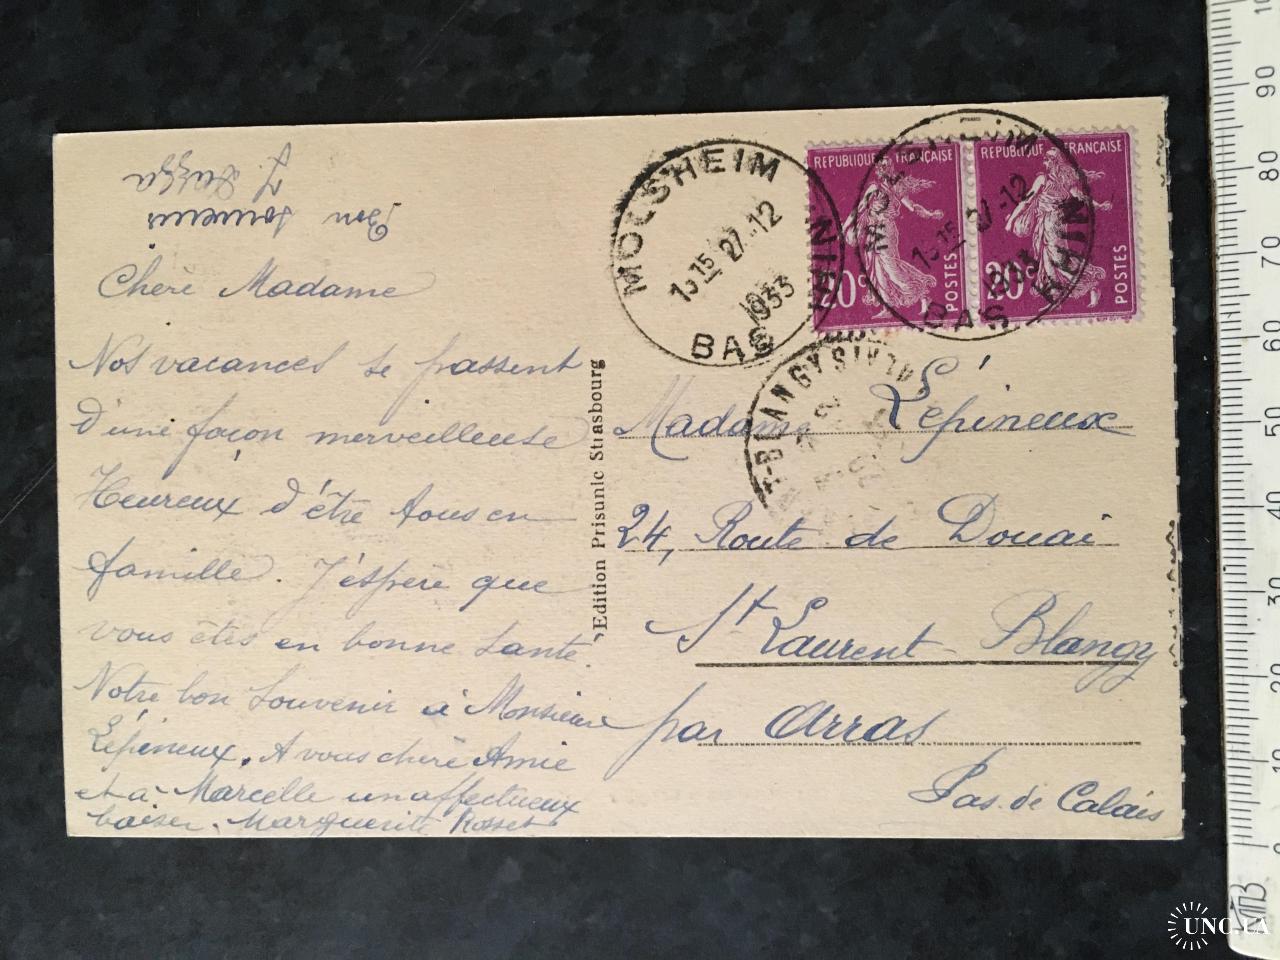 Bon
souvenir
Chère Madame
Nos vacances se passent
d'une façon merveilleuse
Heureux d'être tous en
famille. J'éspère que
vous êtes en bonne santé.
Notre bon souvenir à Monsieur
Lépineux. A vous chère Amie
et à Marcelle un affectueux
baiser. Marguerite Rosset
Edition Prisunic Strasbourg
MOLSHEIM
13 15
27-12
1933
BAS RHIN
REPUBLIQUE FRANÇAISE
20c
POSTES
REPUBLIQUE FRANÇAISE
20c
POSTES
MOLSHEIM
13 15
27-12
1933
BAS RHIN
BLANGY
Madame Lépineux
24, Route de Douai
St Laurent-Blangy
par Arras
Pas-de Calais
10
20
30
40
50
60
70
80
90
UNC.UA